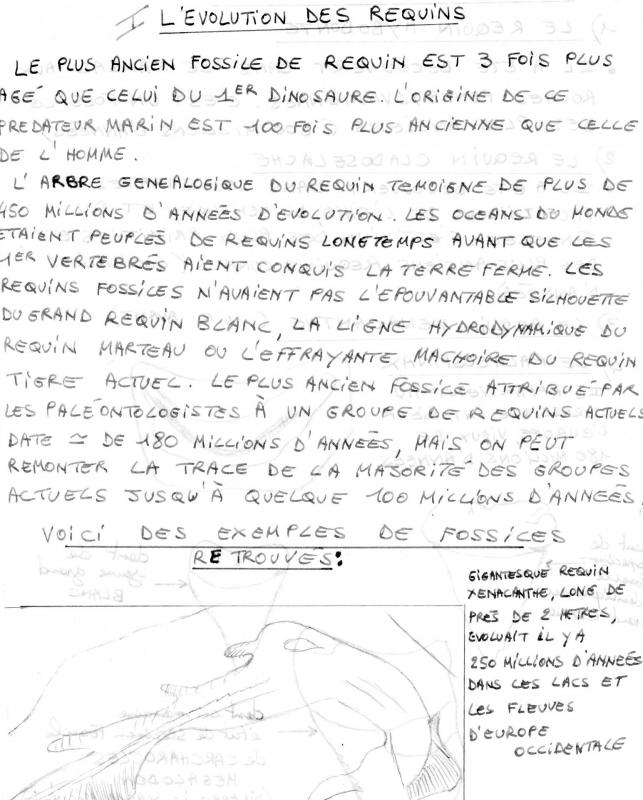 I L'EVOLUTION DES REQUINS
LE PLUS ANCIEN FOSSILE DE REQUIN EST 3 FOIS PLUS
AGÉ QUE CELUI DU 1ER DINOSAURE. L'ORIGINE DE CE
PREDATEUR MARIN EST 100 FOIS PLUS ANCIENNE QUE CELLE
DE L'HOMME.
L'ARBRE GENEALOGIQUE DU REQUIN TEMOIGNE DE PLUS DE
450 MILLIONS D'ANNEÉS D'EVOLUTION. LES OCEANS DU MONDE
ETAIENT PEUPLÉS DE REQUINS LONGTEMPS AVANT QUE LES
1ER VERTEBRÉS AIENT CONQUIS LA TERRE FERME. LES
REQUINS FOSSILES N'AVAIENT PAS L'EPOUVANTABLE SILHOUETTE
DU GRAND REQUIN BLANC, LA LIGNE HYDRODYNAMIQUE DU
REQUIN MARTEAU OU L'EFFRAYANTE MACHOIRE DU REQUIN
TIGRE ACTUEL. LE PLUS ANCIEN FOSSILE ATTRIBUÉ PAR
LES PALÉONTOLOGISTES À UN GROUPE DE REQUINS ACTUELS
DATE ≃ DE 180 MILLIONS D'ANNEÉS, MAIS ON PEUT
REMONTER LA TRACE DE LA MAJORITÉ DES GROUPES
ACTUELS JUSQU'À QUELQUE 100 MILLIONS D'ANNEÉS.
VOICI DES EXEMPLES DE FOSSILES
RETROUVÉS:
GIGANTESQUE REQUIN
XENACANTHE, LONG DE
PRÉS DE 2 METRES,
EVOLUAIT IL Y A
250 MILLIONS D'ANNEÉS
DANS LES LACS ET
LES FLEUVES
D'EUROPE
OCCIDENTALE